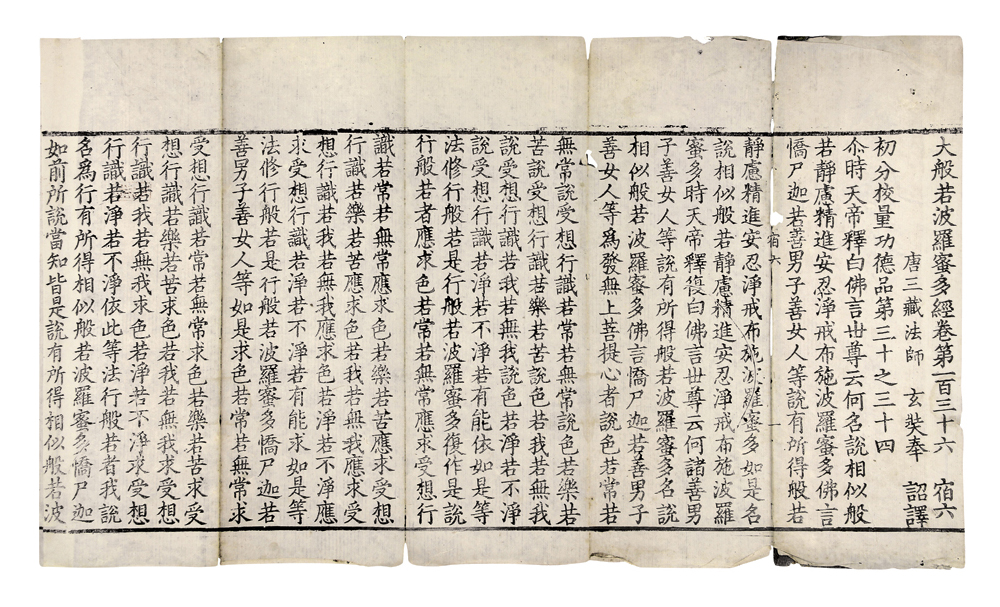 大般若波羅蜜多經卷第一百三十六 宿六
唐三藏法師 玄奘奉 詔譯
初分校量功德品第三十之三十四
尒時天帝釋白佛言世尊云何名說相似般
若靜慮精進安忍淨戒布施波羅蜜多佛言
憍尸迦若善男子善女人等說有所得般若
宿六 一
靜慮精進安忍淨戒布施波羅蜜多如是名
說相似般若靜慮精進安忍淨戒布施波羅
蜜多時天帝釋復白佛言世尊云何諸善男
子善女人等說有所得般若波羅蜜多名說
相似般若波羅蜜多佛言憍尸迦若善男子
善女人等爲發無上菩提心者說色若常若
無常說受想行識若常若無常說色若樂若
苦說受想行識若樂若苦說色若我若無我
說受想行識若我若無我說色若淨若不淨
說受想行識若淨若不淨若有能依如是等
法修行般若是行般若波羅蜜多復作是說
行般若者應求色若常若無常應求受想行
識若常若無常應求色若樂若苦應求受想
行識若樂若苦應求色若我若無我應求受
想行識若我若無我應求色若淨若不淨應
求受想行識若淨若不淨若有能求如是等
法修行般若是行般若波羅蜜多憍尸迦若
善男子善女人等如是求色若常若無常求
受想行識若常若無常求色若樂若苦求受
想行識若樂若苦求色若我若無我求受想
行識若我若無我求色若淨若不淨求受想
行識若淨若不淨依此等法行般若者我說
名爲行有所得相似般若波羅蜜多憍尸迦
如前所說當知皆是說有所得相似般若波